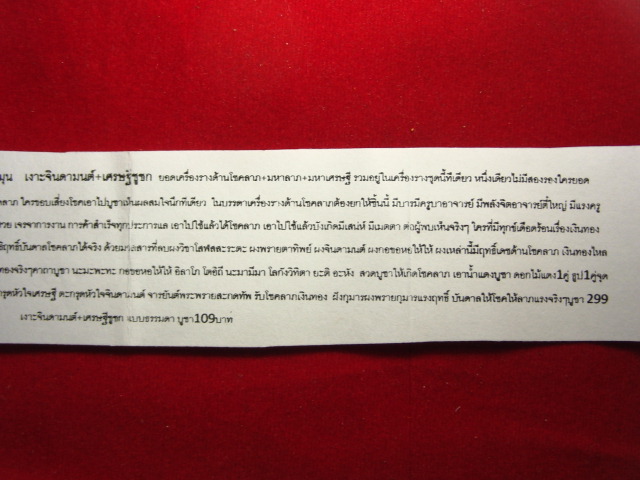 มุน เงาะจินดามนต์+เศรษฐีชูชก ยอดเครื่องรางด้านโชคลาภ+มหาลาภ+มหาเศรษฐี รวมอยู่ในเครื่องรางชุดนี้ที่เดียว หนึ่งเดียวไม่มีสองรองใครยอด
ลาภ ใครชอบเสี่ยงโชคเอาไปบูชาเห็นผลสมใจนึกทีเดียว ในบรรดาเครื่องรางด้านโชคลาภต้องยกให้ชิ้นนี้ มีบารมีครูบาอาจารย์ มีพลังจิตอาจารย์ที่ใหญ่ มีแรงครู
รวย เจรจาการงาน การค้าสำเร็จทุกประการแล เอาไปใช้แล้วได้โชคลาภ เอาไปใช้แล้วบังเกิดมีเสน่ห์ มีเมตตา ต่อผู้พบเห็นจริงๆ ใครที่มีทุกข์เดือดร้อนเรื่องเงินทอง
ฤทธิ์บันดาลโชคลาภได้จริง ด้วยมวลสารที่ลบผงวิชาโสฬสสะระตะ ผงพรายตาทิพย์ ผงจินดามนต์ ผงกอขอยให้ให้ ผงเหล่านี้มีฤทธิ์เดชด้านโชคลาภ เงินทองไหล
ทองจริงๆคาถาบูชา นะมะพะทะ กอขอยให้ให้ อิลาโภ โตอิถี นะมามีมา โลกังวิทิตา ยะติ อะหัง สวดบูชาให้เกิดโชคลาภ เอาน้ำแดงบูชา ดอกไม้แดง1คู่ ธูป1คู่จุด
กรุดหัวใจเศรษฐี ตะกรุดหัวใจจินดามนต์ จารยันต์พระพรายสะกดทัพ รับโชคลาภเงินทอง ฝังกุมารผงพรายกุมารแรงฤทธิ์ บันดาลให้โชคให้ลาภแรงจริงๆบูชา 299
เงาะจินดามนต์+เศรษฐีชูชก แบบธรรมดา บูชา109บาท